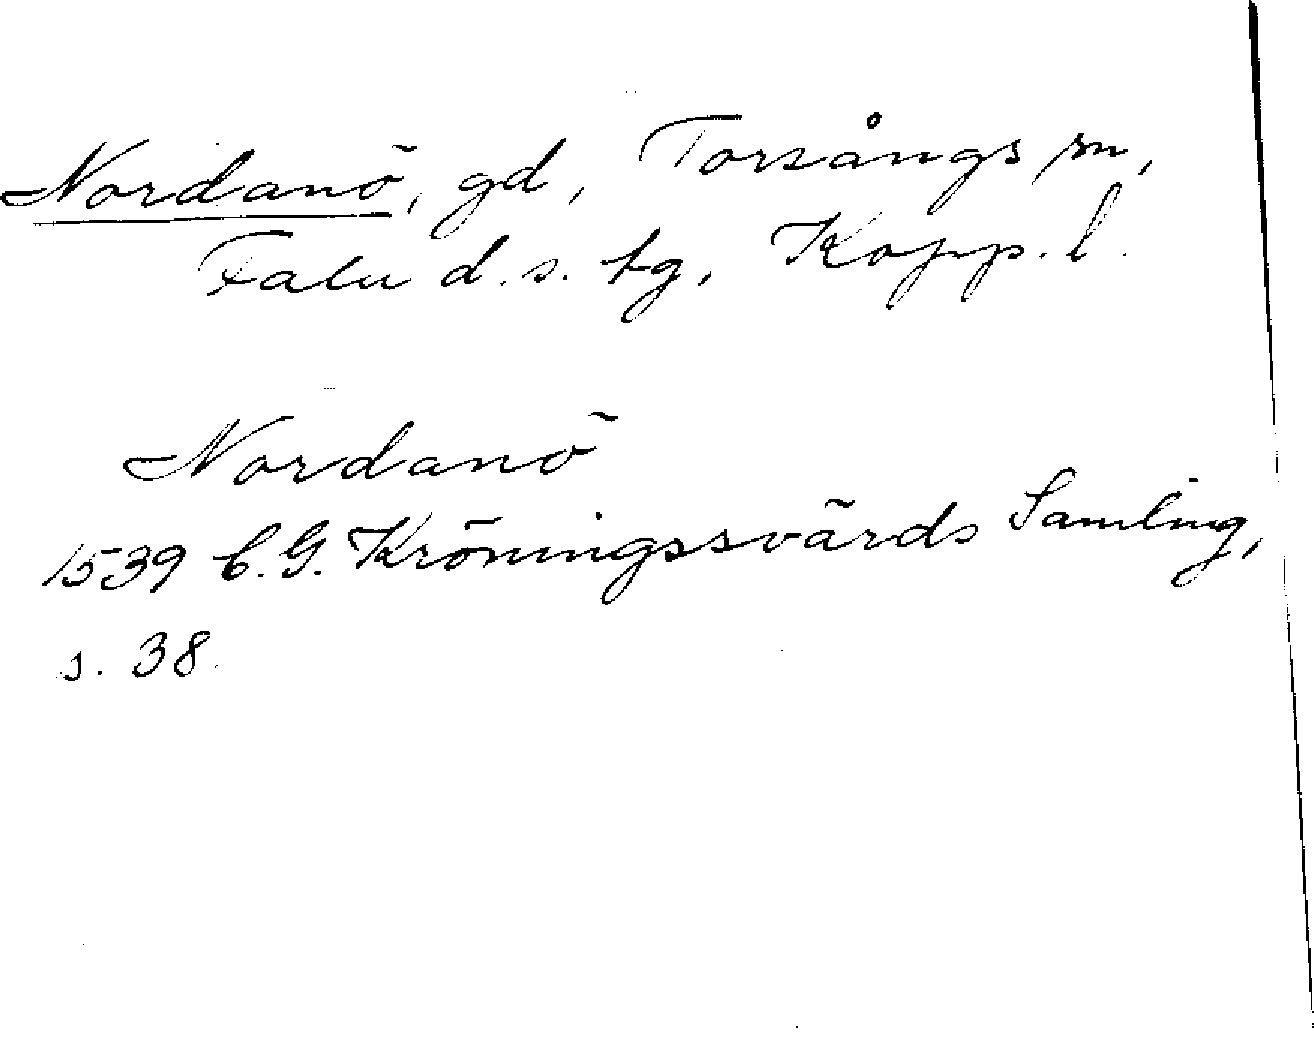 Nordanö, gd, Torsångs sn,
Falu d. s. tg, Kopp. l.
Nordanö
1539 C. G. Kröningssvärds Samling,
s. 38.